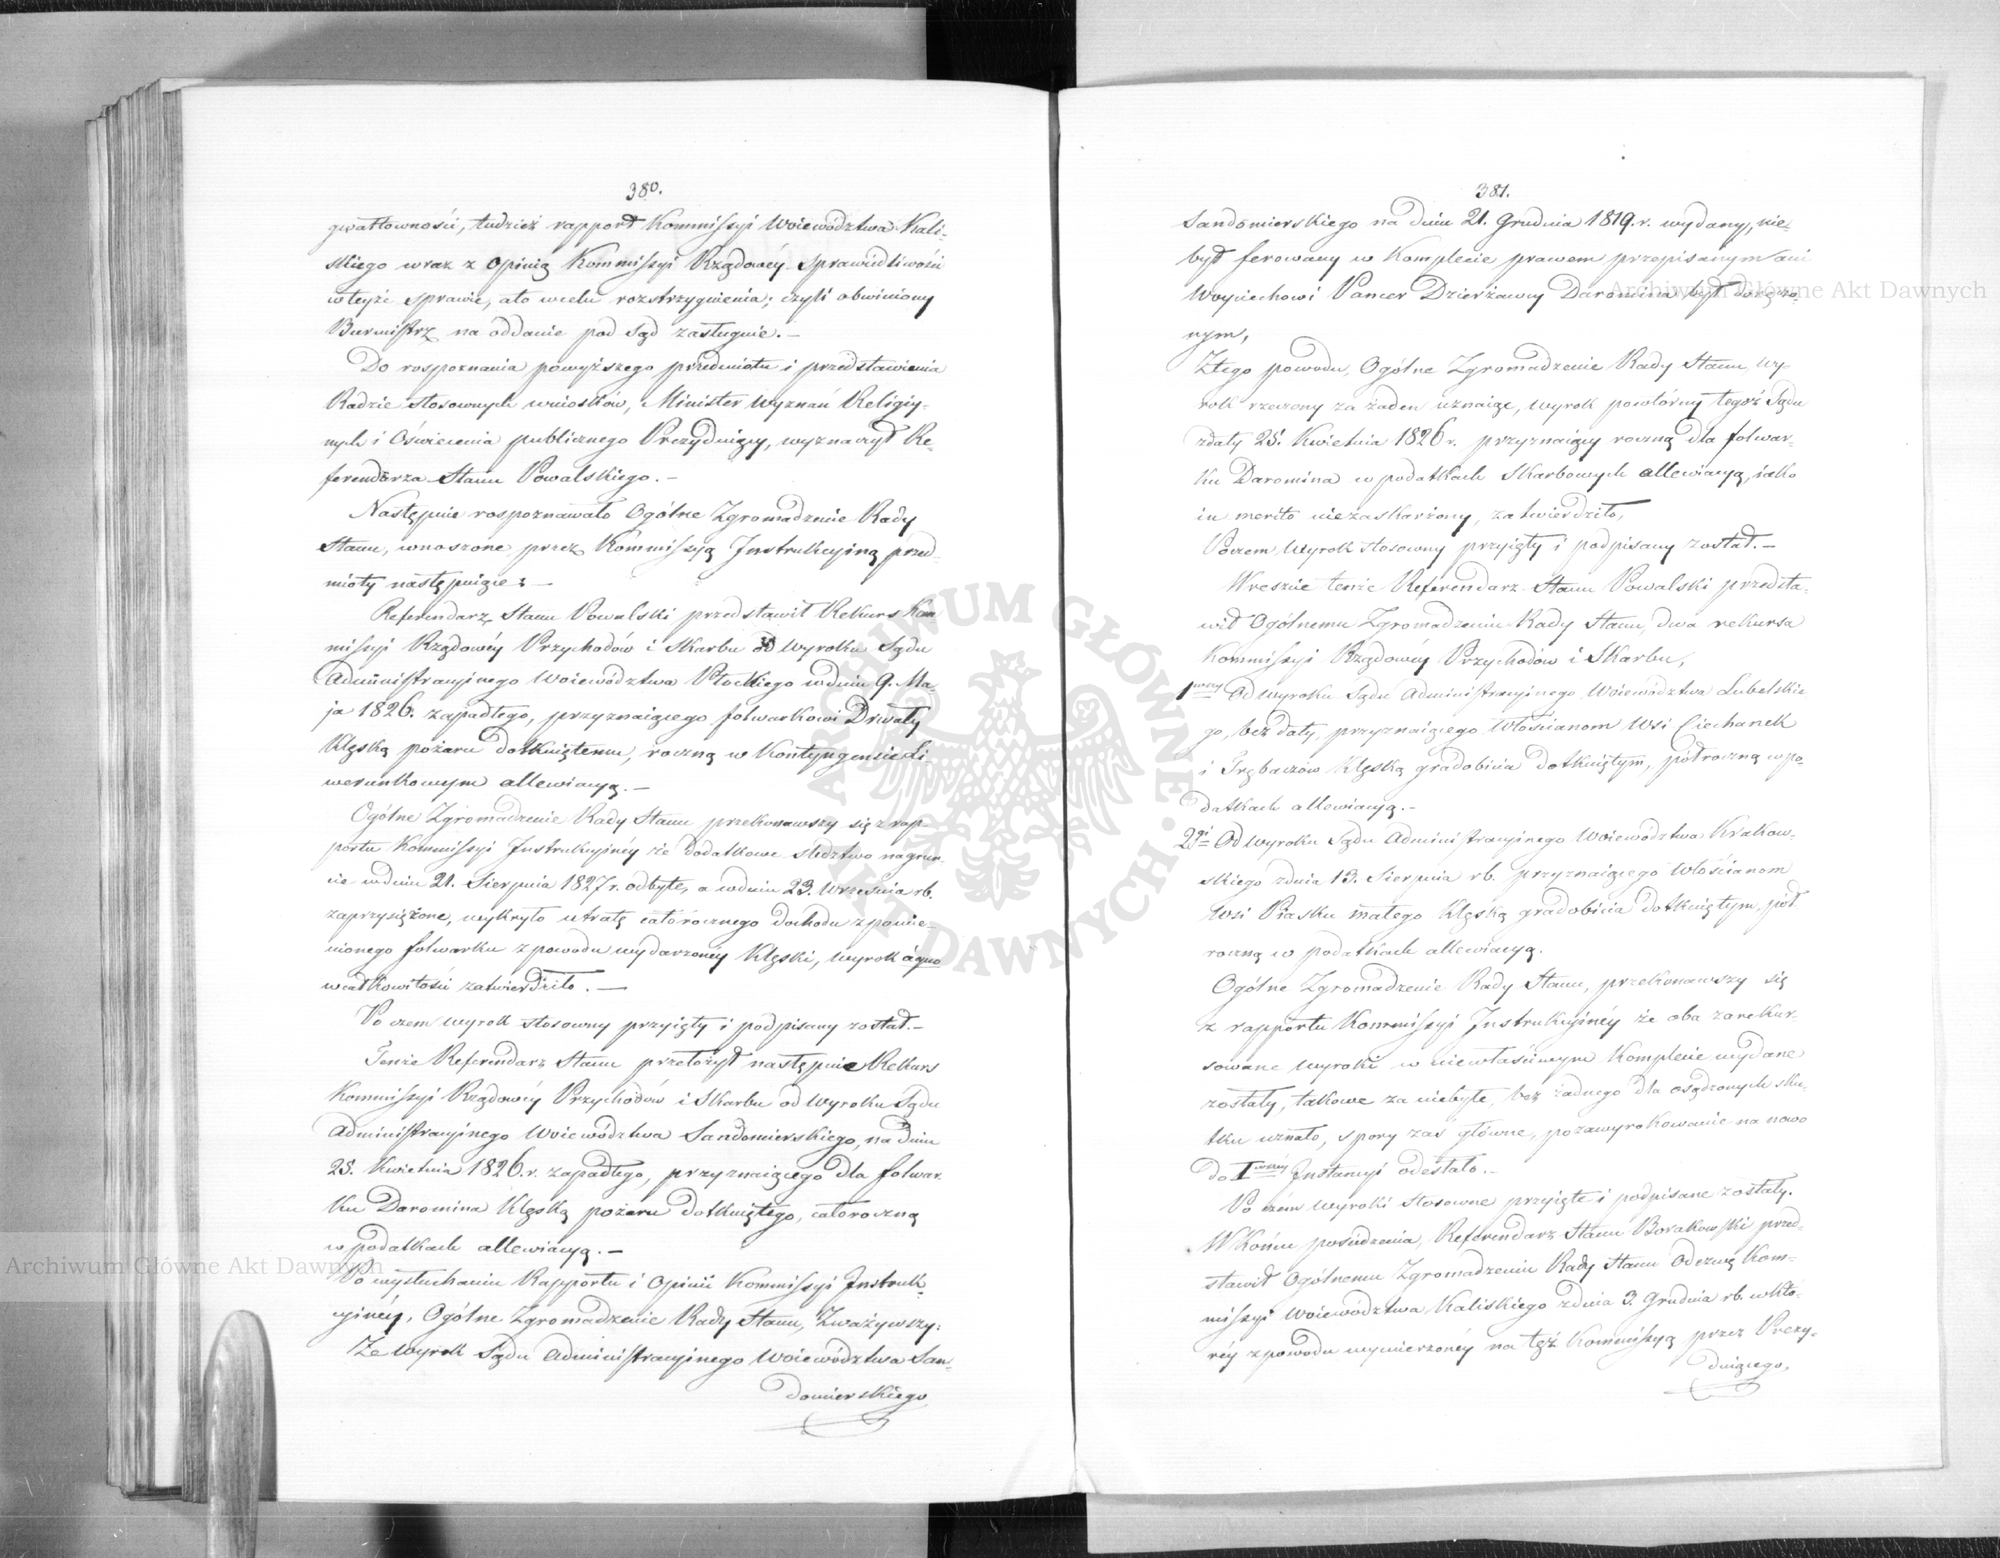 380.
gwałtowności, tudzież rapport Kommissyi Województwa Kali-
skiego wraz z Opinią Kommissyi Rządowéy Sprawiedliwości
w teyże sprawie, a to w celu rozstrzygnienia; czyli obwiniony
Burmistrz na oddanie pod Sąd zasługuie. —
Do rospoznania powyższego przedmiotu i przedstawienia
Radzie stosownych wniosków, Minister Wyznań Religiy-
nych i Oświecenia publicznego Prezyduiący, wyznaczył Re-
ferendarza Stanu Powalskiego. —
Następnie rospoznawało Ogólne Zgromadzenie Rady
Stanu, wnoszone przez Kommissyą Instrukcyiną przed-
mioty następuiące: —
Referendarz Stanu Powalski przedstawił Rekurs Kom-
missyi Rządowéy Przychodów i Skarbu od Wyroku Sądu
Administracyinego Województwa Płockiego w dniu 9. Ma-
ja 1826. zapadłego, przyznaiącego folwarkowi Drwały
Klęską pożaru dotkniętemu, roczną w Kontyngensie Li-
werunkowym allewiacyą. —
Ogólne Zgromadzenie Rady Stanu przekonawszy się z rap-
portu Kommissyi Instrukcyinéy że dodatkowe śledztwo na grun-
cie w dniu 21. Sierpnia 1827 r. odbyte, a w dniu 23. Września rb.
zaprzysiężone, wykryło utratę całorocznego dochodu z pomie-
nionego folwarku z powodu wydarzonéy Klęski, wyrok a quo
w całkowitości zatwierdziło. —
Po czem wyrok stosowny przyięty i podpisany został. —
Tenże Referendarz Stanu przełożył następnie Rekurs
Kommissyi Rządowéy Przychodów i Skarbu od Wyroku Sądu
Administracyinego Województwa Sandomierskiego, na dniu
25. Kwietnia 1826. r. zapadłego, przyznaiącego dla folwar-
ku Daromina Klęską pożaru dotkniętego, całoroczną
w podatkach allewiacyą. —
Po wysłuchaniu Rapportu i Opinii Kommissyi Instruk-
cyinéy, Ogólne Zgromadzenie Rady Stanu, Zważywszy:
Że Wyrok Sądu Administracyinego Województwa San-
domierskiego
381.
Sandomierskiego na dniu 21. Grudnia 1819. r. wydany, nie-
był ferowany w Komplecie prawem przepisanym ani
Woyciechowi Pancer Dzierżawcy Daromina był doręczo-
nym,
Z tego powodu, Ogólne Zgromadzenie Rady Stanu, wy-
rok rzeczony za żaden uznaiąc, wyrok powtórny tegoż Sądu
z daty 25. Kwietnia 1826 r. przyznaiący roczną dla folwar-
ku Daromina w podatkach Skarbowych allewiacyą, iako
in merito niezaskarżony, zatwierdziło,
Poczem Wyrok stosowny przyięty i podpisany został. —
Wreszcie tenże Referendarz Stanu Powalski przedsta-
wił Ogólnemu Zgromadzeniu Rady Stanu, dwa rekursa
Kommissyi Rządowéy Przychodów i Skarbu,
1wszy Od Wyroku Sądu Administracyinego Województwa Lubelskie-
go, bez daty, przyznaiącego Włościanom Wsi Ciechanek
i Trębaczów Klęską gradobicia dotkniętym, półroczną w po-
datkach allewiacyą. —
2gi Od Wyroku Sądu Administracyinego Województwa Krakow-
skiego z dnia 13. Sierpnia rb. przyznaiącego Włościanom
Wsi Piasku małego Klęską gradobicia dotkniętym, pół
roczną w podatkach allewiacyą.
Ogólne Zgromadzenie Rady Stanu, przekonawszy się
z rapportu Kommissyi Instrukcyinéy że oba zarekur-
sowane Wyroki w niewłaściwym Komplecie wydane
zostały, takowe za niebyłe, bez żadnego dla osądzonych sku-
tku uznało, spory zaś główne, po zawyrokowanie na nowo
do Iwszéy Instancyi odesłało. —
Po czém Wyroki stosowne przyięte i podpisane zostały.
W Końcu posiedzenia, Referendarz Stanu Borakowski przed-
stawił Ogólnemu Zgromadzeniu Rady Stanu Odezwę Kom-
missyi Województwa Kaliskiego z dnia 3. Grudnia rb. w któ-
réy z powodu wymierzonéy na też Kommissyą przez Prezy-
duiącego,
ARCHIWUM GŁÓWNE AKT DAWNYCH
Archiwum Główne Akt Dawnych
Archiwum Główne Akt Dawnych